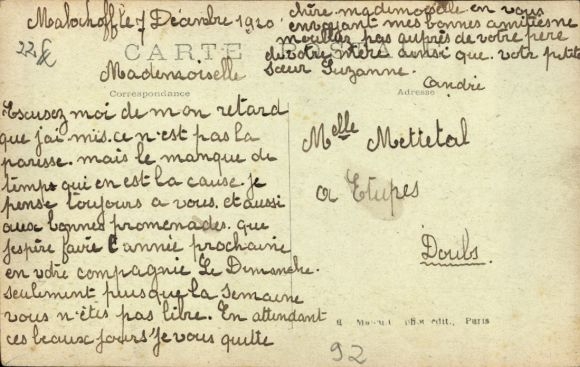 Malackoff le 7 Décembre 1920
22 fc
CARTE POSTALE
Mademoiselle
Correspondance
Escusez moi de mon retard
que j'ai mis. ce n'est pas la
paresse. mais le manque de
temps qui en est la cause. je
pense toujours a vous, et aussi
aux bonnes promenades. que
j'espère faire l'année prochaine
en votre compagnie Le Dimanche.
seulement puisque la semaine
vous n'êtes pas libre. En attendant
ces beaux jours je vous quitte
chère mademoiselle en vous
envoyant mes bonnes amitiés ne
pas auprès de votre père
de votre mère ainsi que votr petite
sœur Suzanne.
André
Adresse
Melle Mettetal
a Etupes
Doubs.
édit., Paris
92